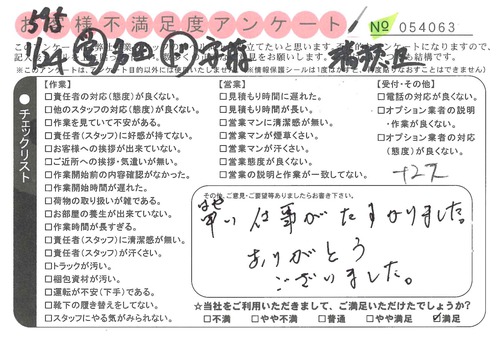 お客様不満足度アンケート
№ 054063
チェックリスト
【作業】
□責任者の対応(態度)が良くない。
□他のスタッフの対応(態度)が良くない。
□作業を見ていて不安がある。
□責任者(スタッフ)に好感が持てない。
□お客様への挨拶が出来ていない。
□ご近所への挨拶・気遣いが無い。
□作業開始前の内容確認がなかった。
□作業開始時間が遅れた。
□荷物の取り扱いが雑である。
□お部屋の養生が出来ていない。
□作業時間が長すぎる。
□責任者(スタッフ)に清潔感が無い。
□責任者(スタッフ)が汗くさい。
□トラックが汚い。
□梱包資材が汚い。
□運転が不安(下手)である。
□靴下の履き替えをしてない。
□スタッフにやる気がみられない。
【営業】
□見積もり時間に遅れた。
□見積もり時間が長い。
□営業マンに清潔感が無い。
□営業マンが煙草くさい。
□営業マンが汗くさい。
□営業態度が良くない。
□営業の説明と作業が一致してない。
【受付・その他】
□電話の対応が良くない。
□オプション業者の説明
・作業が良くない。
□オプション業者の対応
(態度)が良くない。
その他、ご意見・ご要望等ありましたらお書き下さい。
早い仕事がたすかりました。
ありがとう
ございました。
☆当社をご利用いただきまして、ご満足いただけたでしょうか?
□不満 □やや不満 □普通 □やや満足 ☑満足